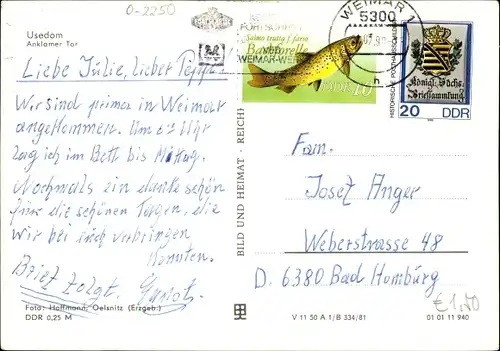 O-2250
Usedom
Anklamer Tor
Liebe Julie, lieber Peppi!
Wir sind prima in Weimar
angekommen. Um 6 Uhr
lag ich im Bett bis Mittag.
Nochmals ein danke schön
für die schönen Tagen, die
wir bei euch verbringen
konnten.
Brief folgt.
Foto: Hoffmann, Oelsnitz (Erzgeb.)
DDR 0,25 M
BILD UND HEIMAT REICH
WEIMAR 1
5300
h
WEIMAR-WER
Salmo trutta f. fario
Bachforelle
DDR 10
HISTORISCHE POSTHAUSSCHILDER
Königl. Sächs.
Briefsammlung
20 DDR
Fam.
Josef Anger
Weberstrasse 48
D. 6380 Bad Homburg
€ 1,70
V 11 50 A 1/B 334/81
01 01 11 940